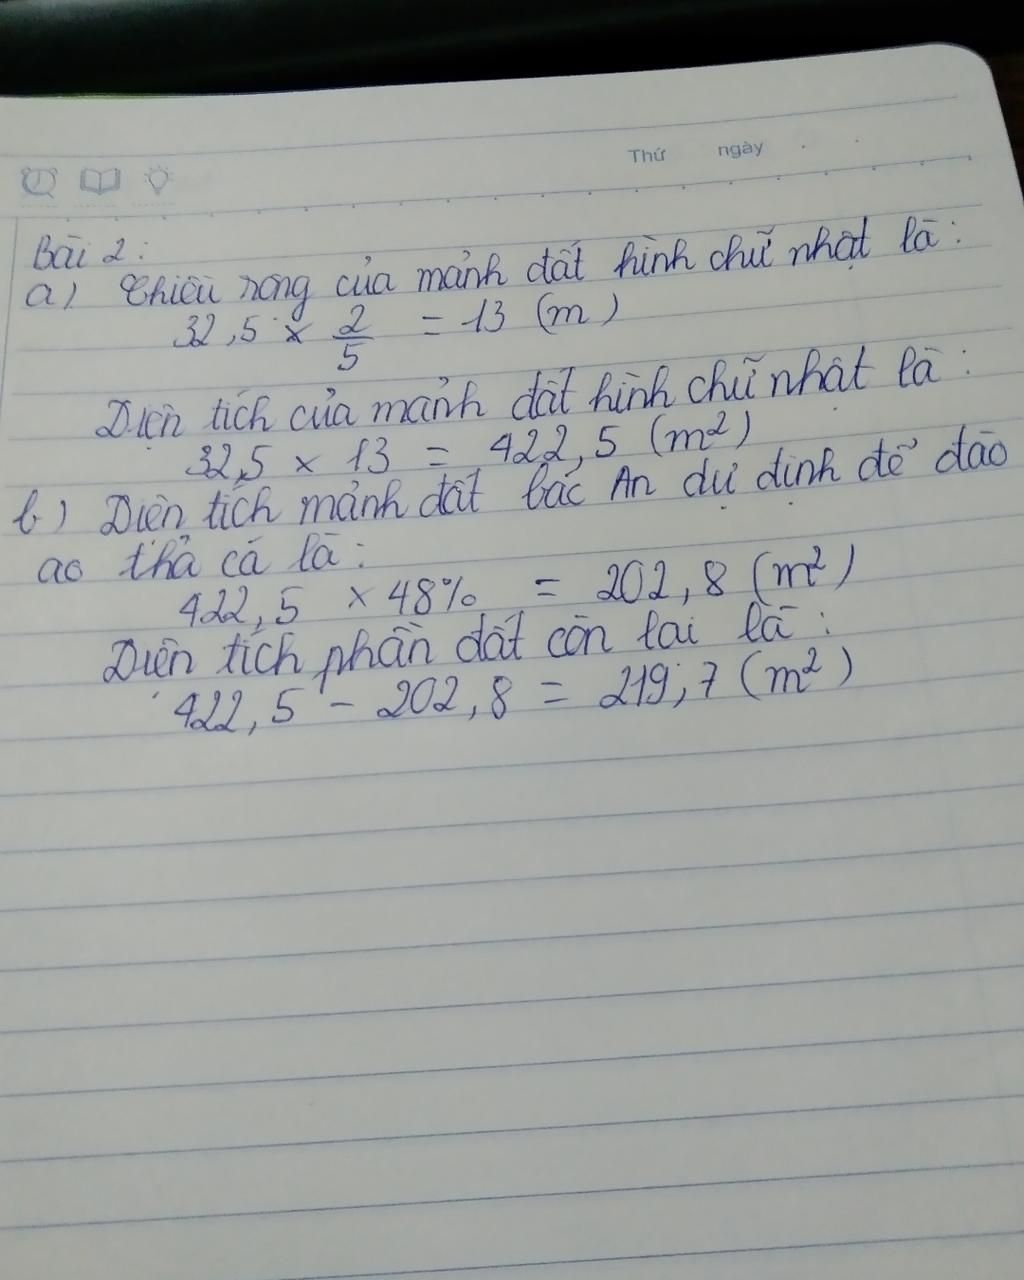 Thứ ngày
Bài 2:
a) Chiều rộng của mảnh đất hình chữ nhật là:
32,5 × 2/5 = 13 (m)
Diện tích của mảnh đất hình chữ nhật là:
32,5 × 13 = 422,5 (m²)
b) Diện tích mảnh đất bác An dự định để đào
ao thả cá là:
422,5 × 48% = 202,8 (m²)
Diện tích phần đất còn lại là:
422,5 - 202,8 = 219,7 (m²)